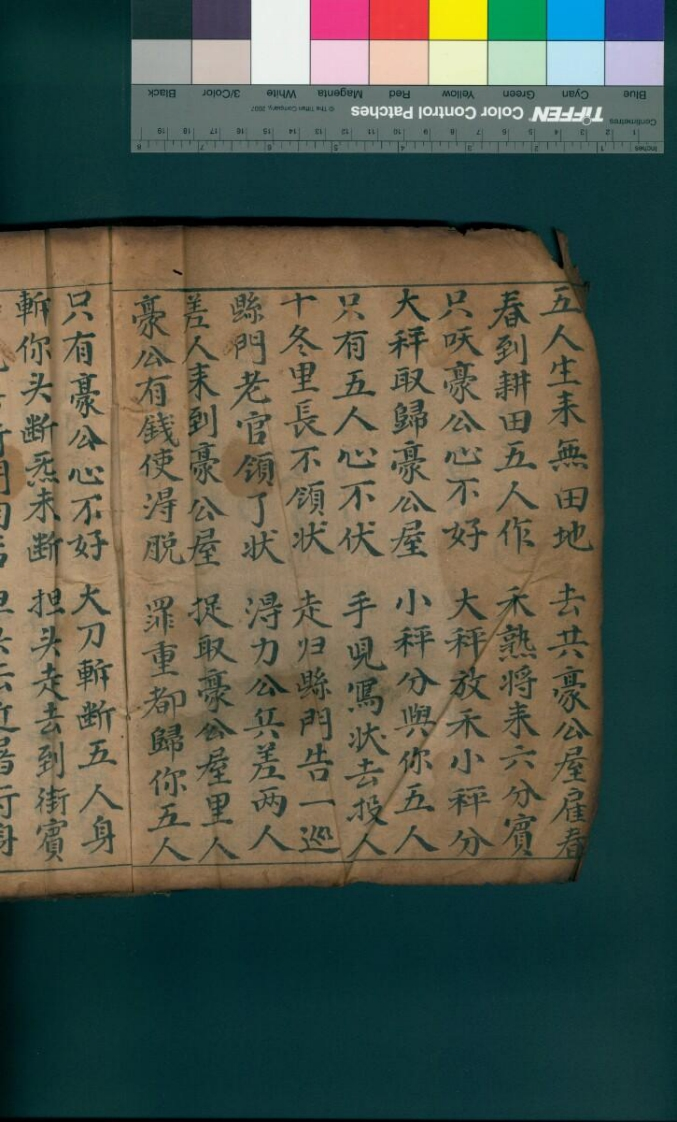 Blue Cyan Green Yellow Red Magenta White 3/Color Black
TIFFEN Color Control Patches
© The Tiffen Company, 2007
Centimetres
Inches
五人生耒無田地 去共豪公屋雇春
春到耕田五人作 禾熟将耒六分賔
只呋豪公心不好 大秤放禾小秤分
大秤取歸豪公屋 小秤分與你五人
只有五人心不伏 手見寫状去投人
十冬里長不領状 走归縣門告一巡
縣門老官領了状 淂力公兵差两人
差人耒到豪公屋 捉取豪公屋里人
豪公有錢使淂脱 罪重都歸你五人
只有豪公心不好 大刀斬断五人身
斬你头断炁未断 担头走去到街賔